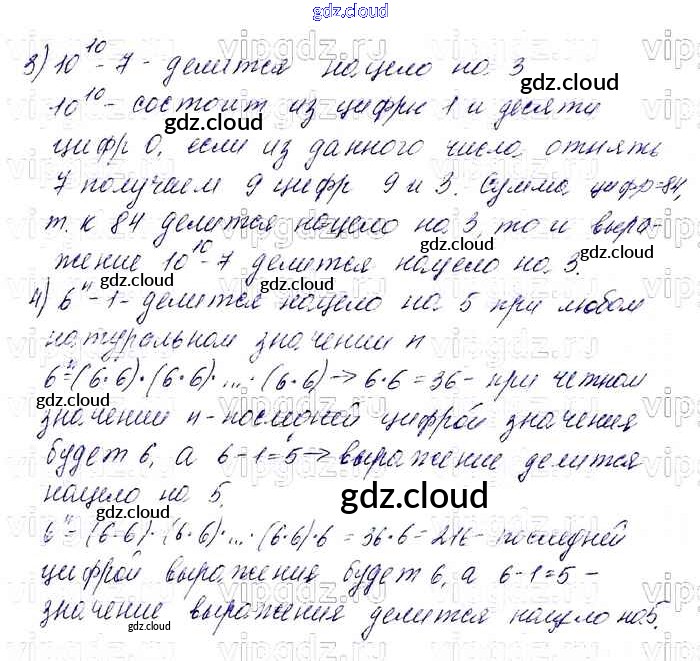 gdz.cloud
3) 10¹⁰ - 7 - делится нацело на 3
gdz.cloud
10¹⁰ - состоит из цифры 1 и десяти
gdz.cloud
цифр 0, если из данного числа отнять
7 получаем 9 цифр 9 и 3. Сумма цифр=84,
т. к 84 делится нацело на 3, то и выра-
gdz.cloud gdz.cloud
жение 10¹⁰ - 7 делится нацело на 3.
gdz.cloud
4) 6ⁿ - 1 - делится нацело на 5 при любом
натуральном значении n
6ⁿ=(6·6)·(6·6)·...·(6·6)→6·6=36 - при четном
gdz.cloud
значении n - последней цифрой значения
будет 6, а 6-1=5→выражение делится
нацело на 5.
gdz.cloud
gdz.cloud
6ⁿ=(6·6)·(6·6)·...·(6·6)·6=36·6=216 - последней
цифрой выражения будет 6, а 6-1=5 -
значение выражения делится нацело на 5.
gdz.cloud